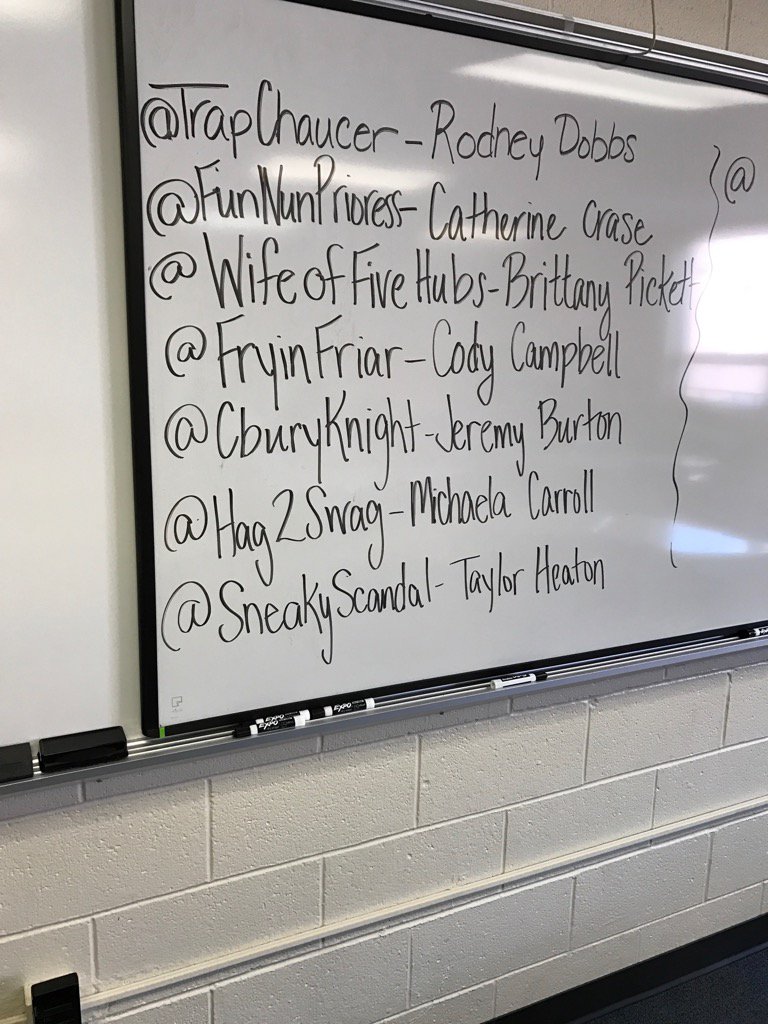 @TrapChaucer - Rodney Dobbs
@FunNunPrioress - Catherine Crase
@WifeofFiveHubs - Brittany Pickett
@FryinFriar - Cody Campbell
@CburyKnight - Jeremy Burton
@Hag2Swag - Michaela Carroll
@SneakyScandal - Taylor Heaton
@
EXPO
EXPO
EXPO